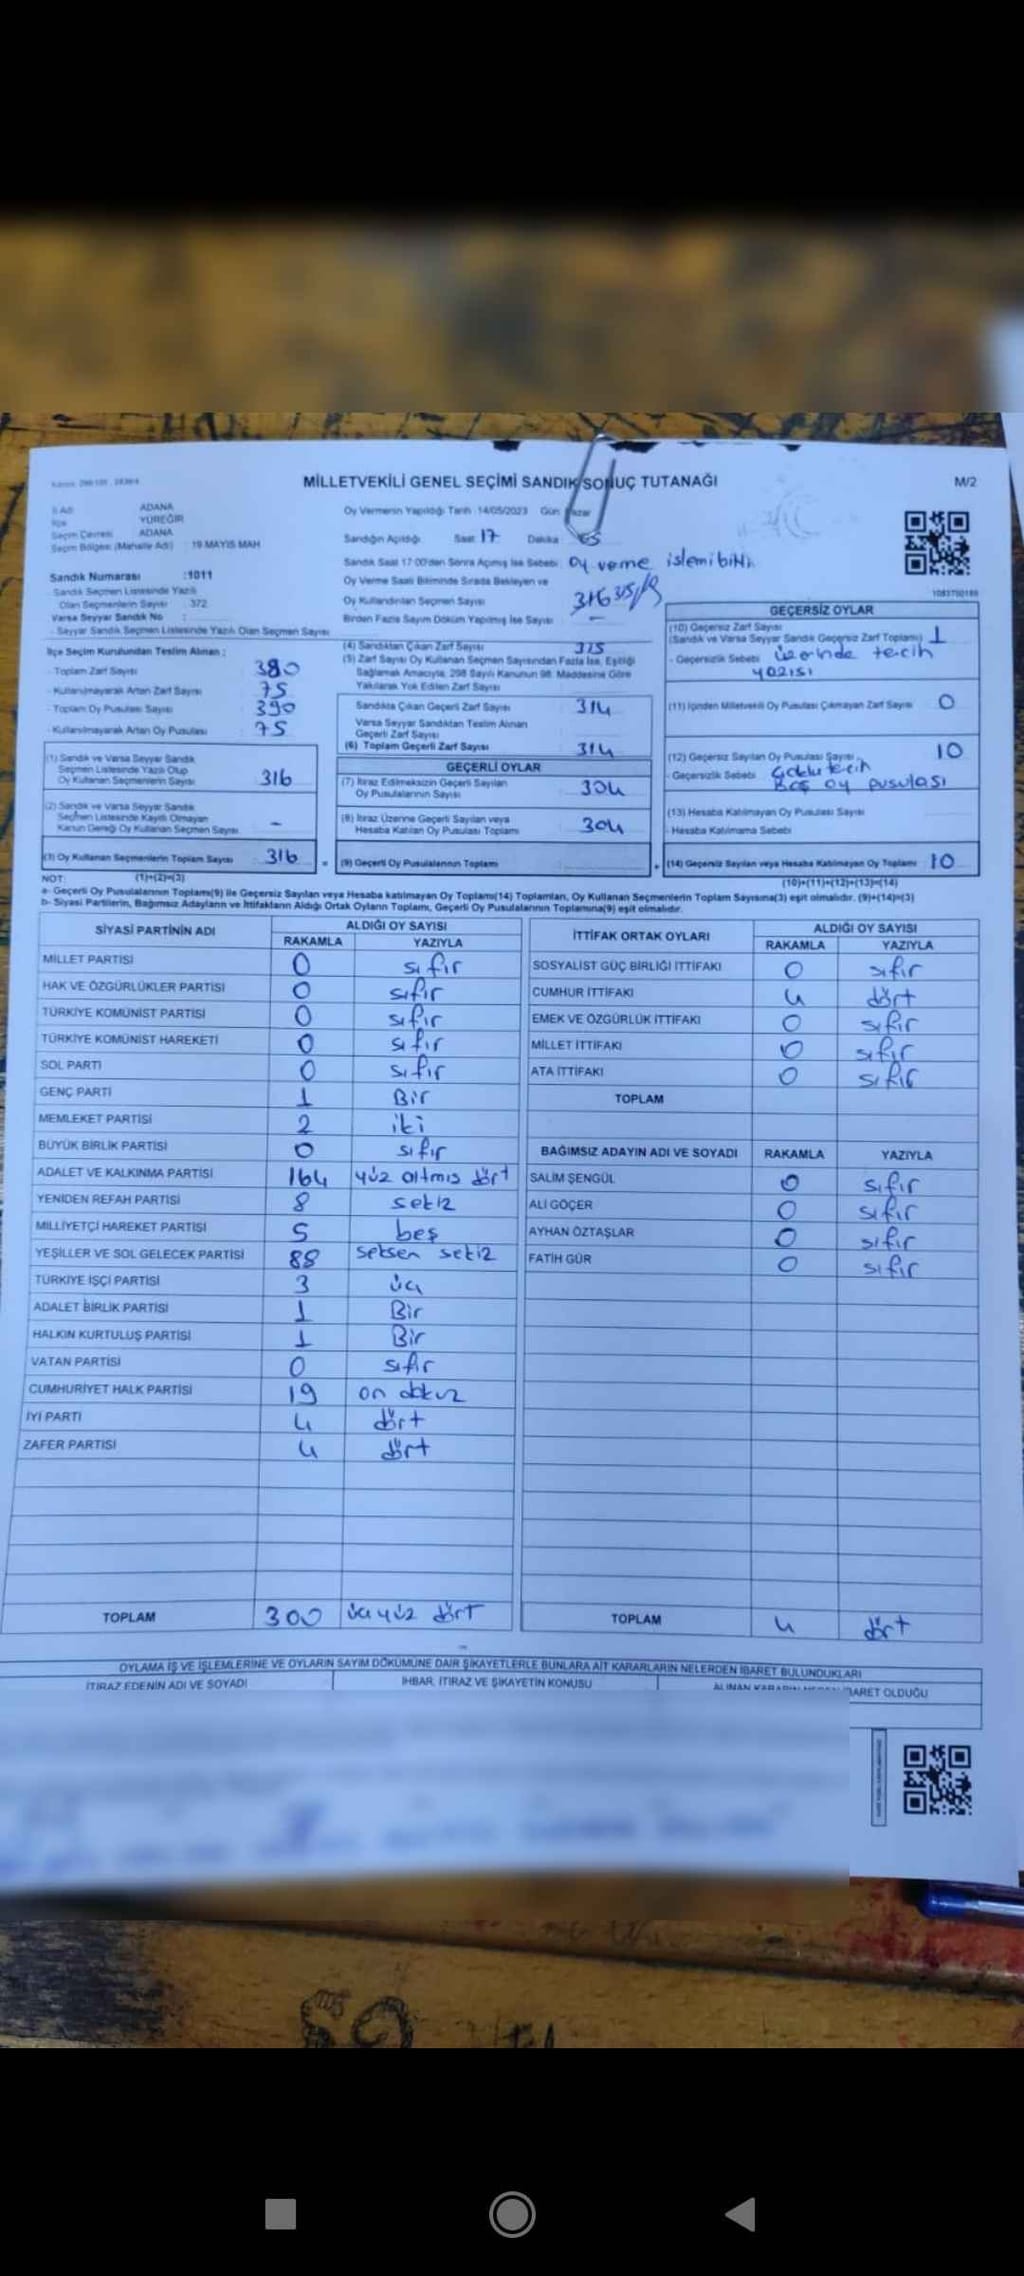 MİLLETVEKİLİ GENEL SEÇİMİ SANDIK SONUÇ TUTANAĞI
M/2
İl Adı ADANA
İlçe YÜREĞİR
Seçim Çevresi ADANA
Seçim Bölgesi (Mahalle Adı) : 19 MAYIS MAH
Oy Vermenin Yapıldığı Tarih :14/05/2023 Gün : Pazar
Sandığın Açıldığı Saat 17 Dakika 05
Sandık Saat 17:00'den Sonra Açımış İse Sebebi: oy verme işlemi bitti
Oy Verme Saati Bitiminde Sırada Bekleyen ve
Oy Kullandırılan Seçmen Sayısı 316 315
Birden Fazla Sayım Döküm Yapılmış İse Sayısı —
Sandık Numarası :1011
Sandık Seçmen Listesinde Yazılı
Olan Seçmenlerin Sayısı : 372
Varsa Seyyar Sandık No :
- Seyyar Sandık Seçmen Listesinde Yazılı Olan Seçmen Sayısı
İlçe Seçim Kurulundan Teslim Alınan ;
- Toplam Zarf Sayısı 380
- Kullanılmayarak Artan Zarf Sayısı 75
- Toplam Oy Pusulası Sayısı 390
- Kullanılmayarak Artan Oy Pusulası 75
(1) Sandık ve Varsa Seyyar Sandık
Seçmen Listesinde Yazılı Olup
Oy Kullanan Seçmenlerin Sayısı 316
(2) Sandık ve Varsa Seyyar Sandık
Seçmen Listesinde Kayıtlı Olmayan
Kanun Gereği Oy Kullanan Seçmen Sayısı -
(3) Oy Kullanan Seçmenlerin Toplam Sayısı 316
(4) Sandıktan Çıkan Zarf Sayısı 315
(5) Zarf Sayısı Oy Kullanan Seçmen Sayısından Fazla İse, Eşitliği
Sağlamak Amacıyla, 298 Sayılı Kanunun 98. Maddesine Göre
Yakılarak Yok Edilen Zarf Sayısı
Sandıkta Çıkan Geçerli Zarf Sayısı 314
Varsa Seyyar Sandıktan Teslim Alınan
Geçerli Zarf Sayısı
(6) Toplam Geçerli Zarf Sayısı 314
GEÇERLİ OYLAR
(7) İtiraz Edilmeksizin Geçerli Sayılan
Oy Pusulalarının Sayısı 304
(8) İtiraz Üzerine Geçerli Sayılan veya
Hesaba Katılan Oy Pusulası Toplamı 304
(9) Geçerli Oy Pusulalarının Toplamı
1083750189
GEÇERSİZ OYLAR
(10) Geçersiz Zarf Sayısı
(Sandık ve Varsa Seyyar Sandık Geçersiz Zarf Toplamı) 1
- Geçersizlik Sebebi üzerinde tercih
yazısı
(11) İçinden Milletvekili Oy Pusulası Çıkmayan Zarf Sayısı 0
(12) Geçersiz Sayılan Oy Pusulası Sayısı 10
- Geçersizlik Sebebi Çoklu tercih
Boş oy pusulası
(13) Hesaba Katılmayan Oy Pusulası Sayısı
- Hesaba Katılmama Sebebi
(14) Geçersiz Sayılan veya Hesaba Katılmayan Oy Toplamı 10
NOT: (1)+(2)=(3)
(10)+(11)+(12)+(13)=(14)
a- Geçerli Oy Pusulalarının Toplamı(9) ile Geçersiz Sayılan veya Hesaba katılmayan Oy Toplamı(14) Toplamları, Oy Kullanan Seçmenlerin Toplam Sayısına(3) eşit olmalıdır. (9)+(14)=(3)
b- Siyasi Partilerin, Bağımsız Adayların ve İttifakların Aldığı Ortak Oyların Toplamı, Geçerli Oy Pusulalarının Toplamına(9) eşit olmalıdır.
SİYASİ PARTİNİN ADI ALDIĞI OY SAYISI
RAKAMLA YAZIYLA
MİLLET PARTİSİ 0 sıfır
HAK VE ÖZGÜRLÜKLER PARTİSİ 0 sıfır
TÜRKİYE KOMÜNİST PARTİSİ 0 sıfır
TÜRKİYE KOMÜNİST HAREKETİ 0 sıfır
SOL PARTİ 0 sıfır
GENÇ PARTİ 1 Bir
MEMLEKET PARTİSİ 2 iki
BÜYÜK BİRLİK PARTİSİ 0 sıfır
ADALET VE KALKINMA PARTİSİ 164 yüz altmış dört
YENİDEN REFAH PARTİSİ 8 sekiz
MİLLİYETÇİ HAREKET PARTİSİ 5 beş
YEŞİLLER VE SOL GELECEK PARTİSİ 88 seksen sekiz
TÜRKİYE İŞÇİ PARTİSİ 3 üç
ADALET BİRLİK PARTİSİ 1 Bir
HALKIN KURTULUŞ PARTİSİ 1 Bir
VATAN PARTİSİ 0 sıfır
CUMHURİYET HALK PARTİSİ 19 on dokuz
İYİ PARTİ 4 dört
ZAFER PARTİSİ 4 dört
TOPLAM 300 üç yüz dört
İTTİFAK ORTAK OYLARI ALDIĞI OY SAYISI
RAKAMLA YAZIYLA
SOSYALİST GÜÇ BİRLİĞİ İTTİFAKI 0 sıfır
CUMHUR İTTİFAKI 4 dört
EMEK VE ÖZGÜRLÜK İTTİFAKI 0 sıfır
MİLLET İTTİFAKI 0 sıfır
ATA İTTİFAKI 0 sıfır
TOPLAM
BAĞIMSIZ ADAYIN ADI VE SOYADI RAKAMLA YAZIYLA
SALİM ŞENGÜL 0 sıfır
ALİ GÖÇER 0 sıfır
AYHAN ÖZTAŞLAR 0 sıfır
FATİH GÜR 0 sıfır
TOPLAM 4 dört
OYLAMA İŞ VE İŞLEMLERİNE VE OYLARIN SAYIM DÖKÜMÜNE DAİR ŞİKAYETLERLE BUNLARA AİT KARARLARIN NELERDEN İBARET BULUNDUKLARI
İTİRAZ EDENİN ADI VE SOYADI İHBAR, İTİRAZ VE ŞİKAYETİN KONUSU ALINAN KARARIN NEDEN İBARET OLDUĞU